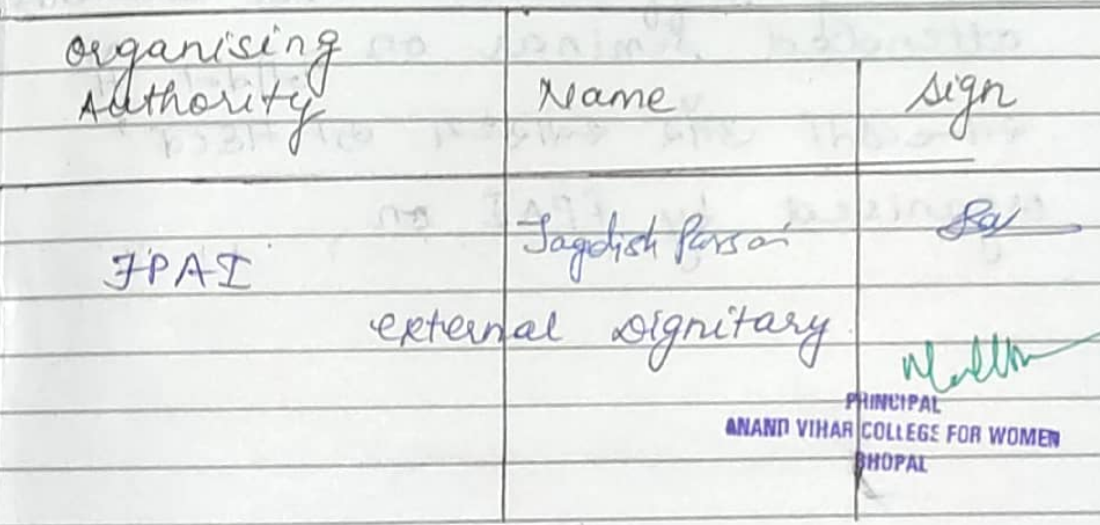 Organising
Authority
Name
Sign
FPAI
Jagdish Parsai
External Dignitary
PRINCIPAL
ANAND VIHAR COLLEGE FOR WOMEN
BHOPAL